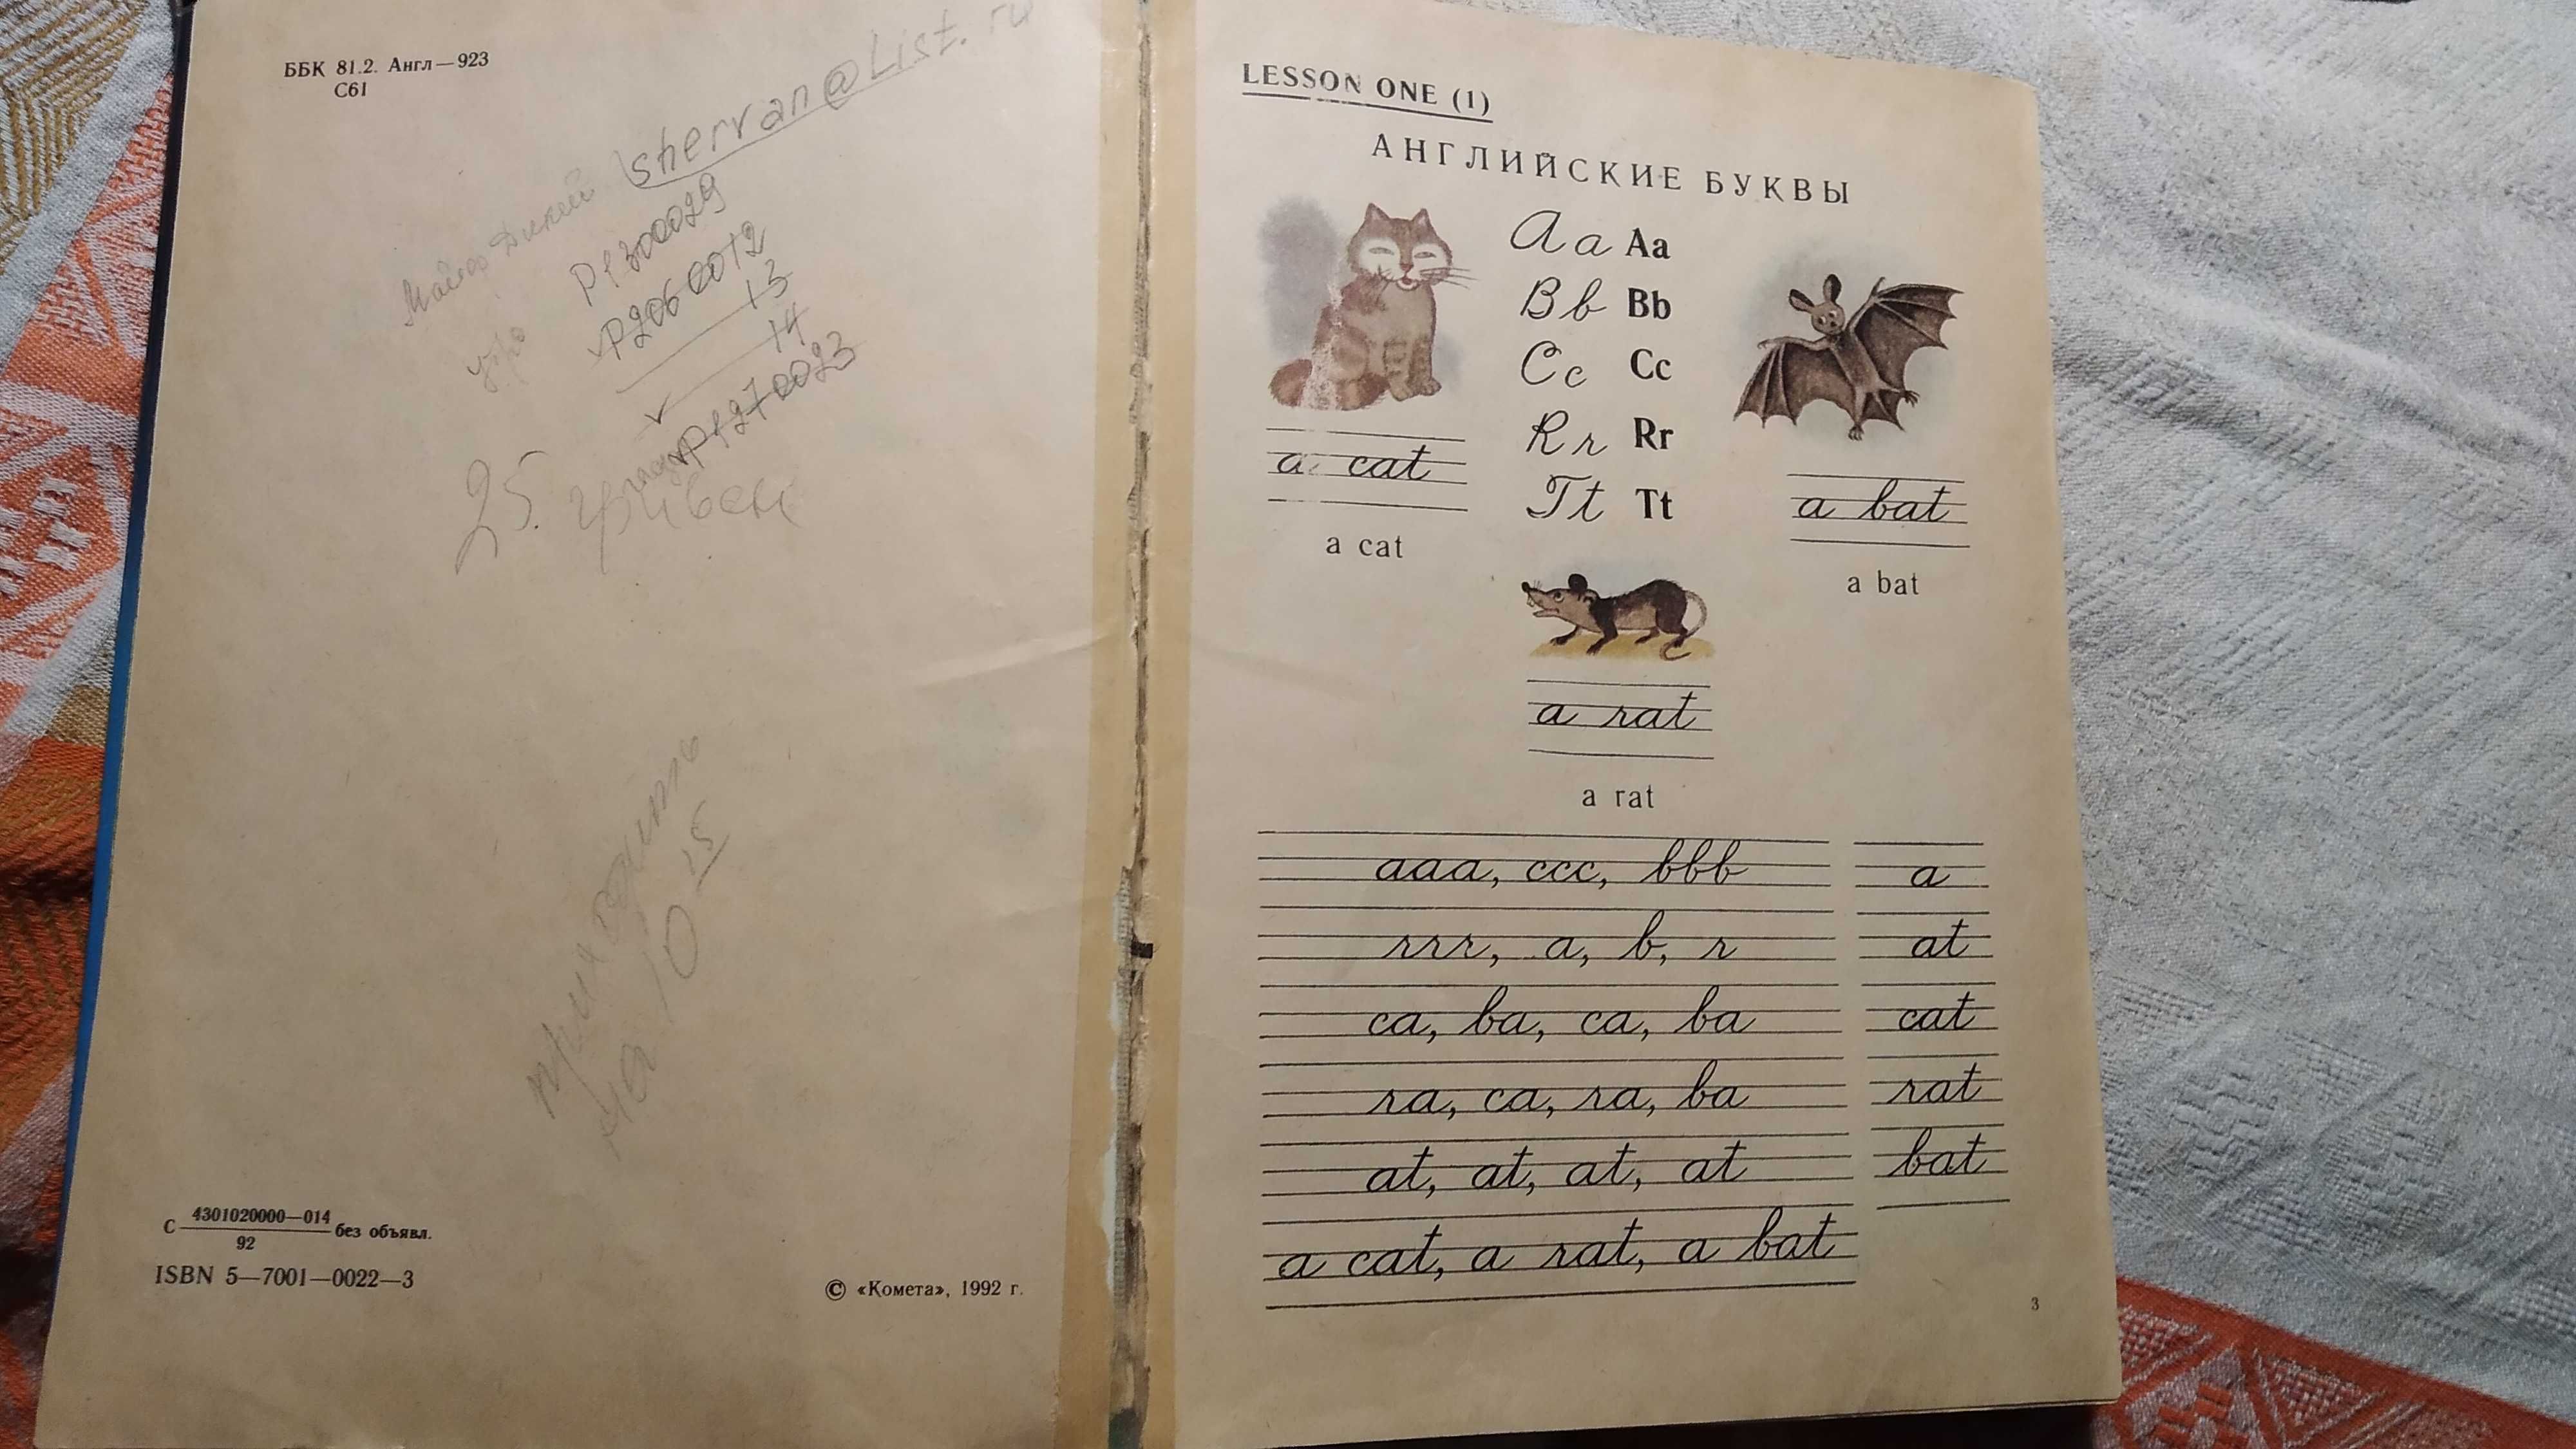 ББК 81.2. Англ—923
С61
Майор Дикий shervan@List.ru
утро Р1300029
Р2060012
13
14
Р1270023
25. гривен
на 10 15
С 4301020000—014 без объявл.
92
ISBN 5—7001—0022—3
© «Комета», 1992 г.
LESSON ONE (1)
АНГЛИЙСКИЕ БУКВЫ
Aa Aa
Bb Bb
Cc Cc
Rr Rr
Tt Tt
a cat
a cat
a bat
a bat
a rat
a rat
aaa, ccc, bbb
rrr, a, b, r
ca, ba, ca, ba
ra, ca, ra, ba
at, at, at, at
a cat, a rat, a bat
a
at
cat
rat
bat
3